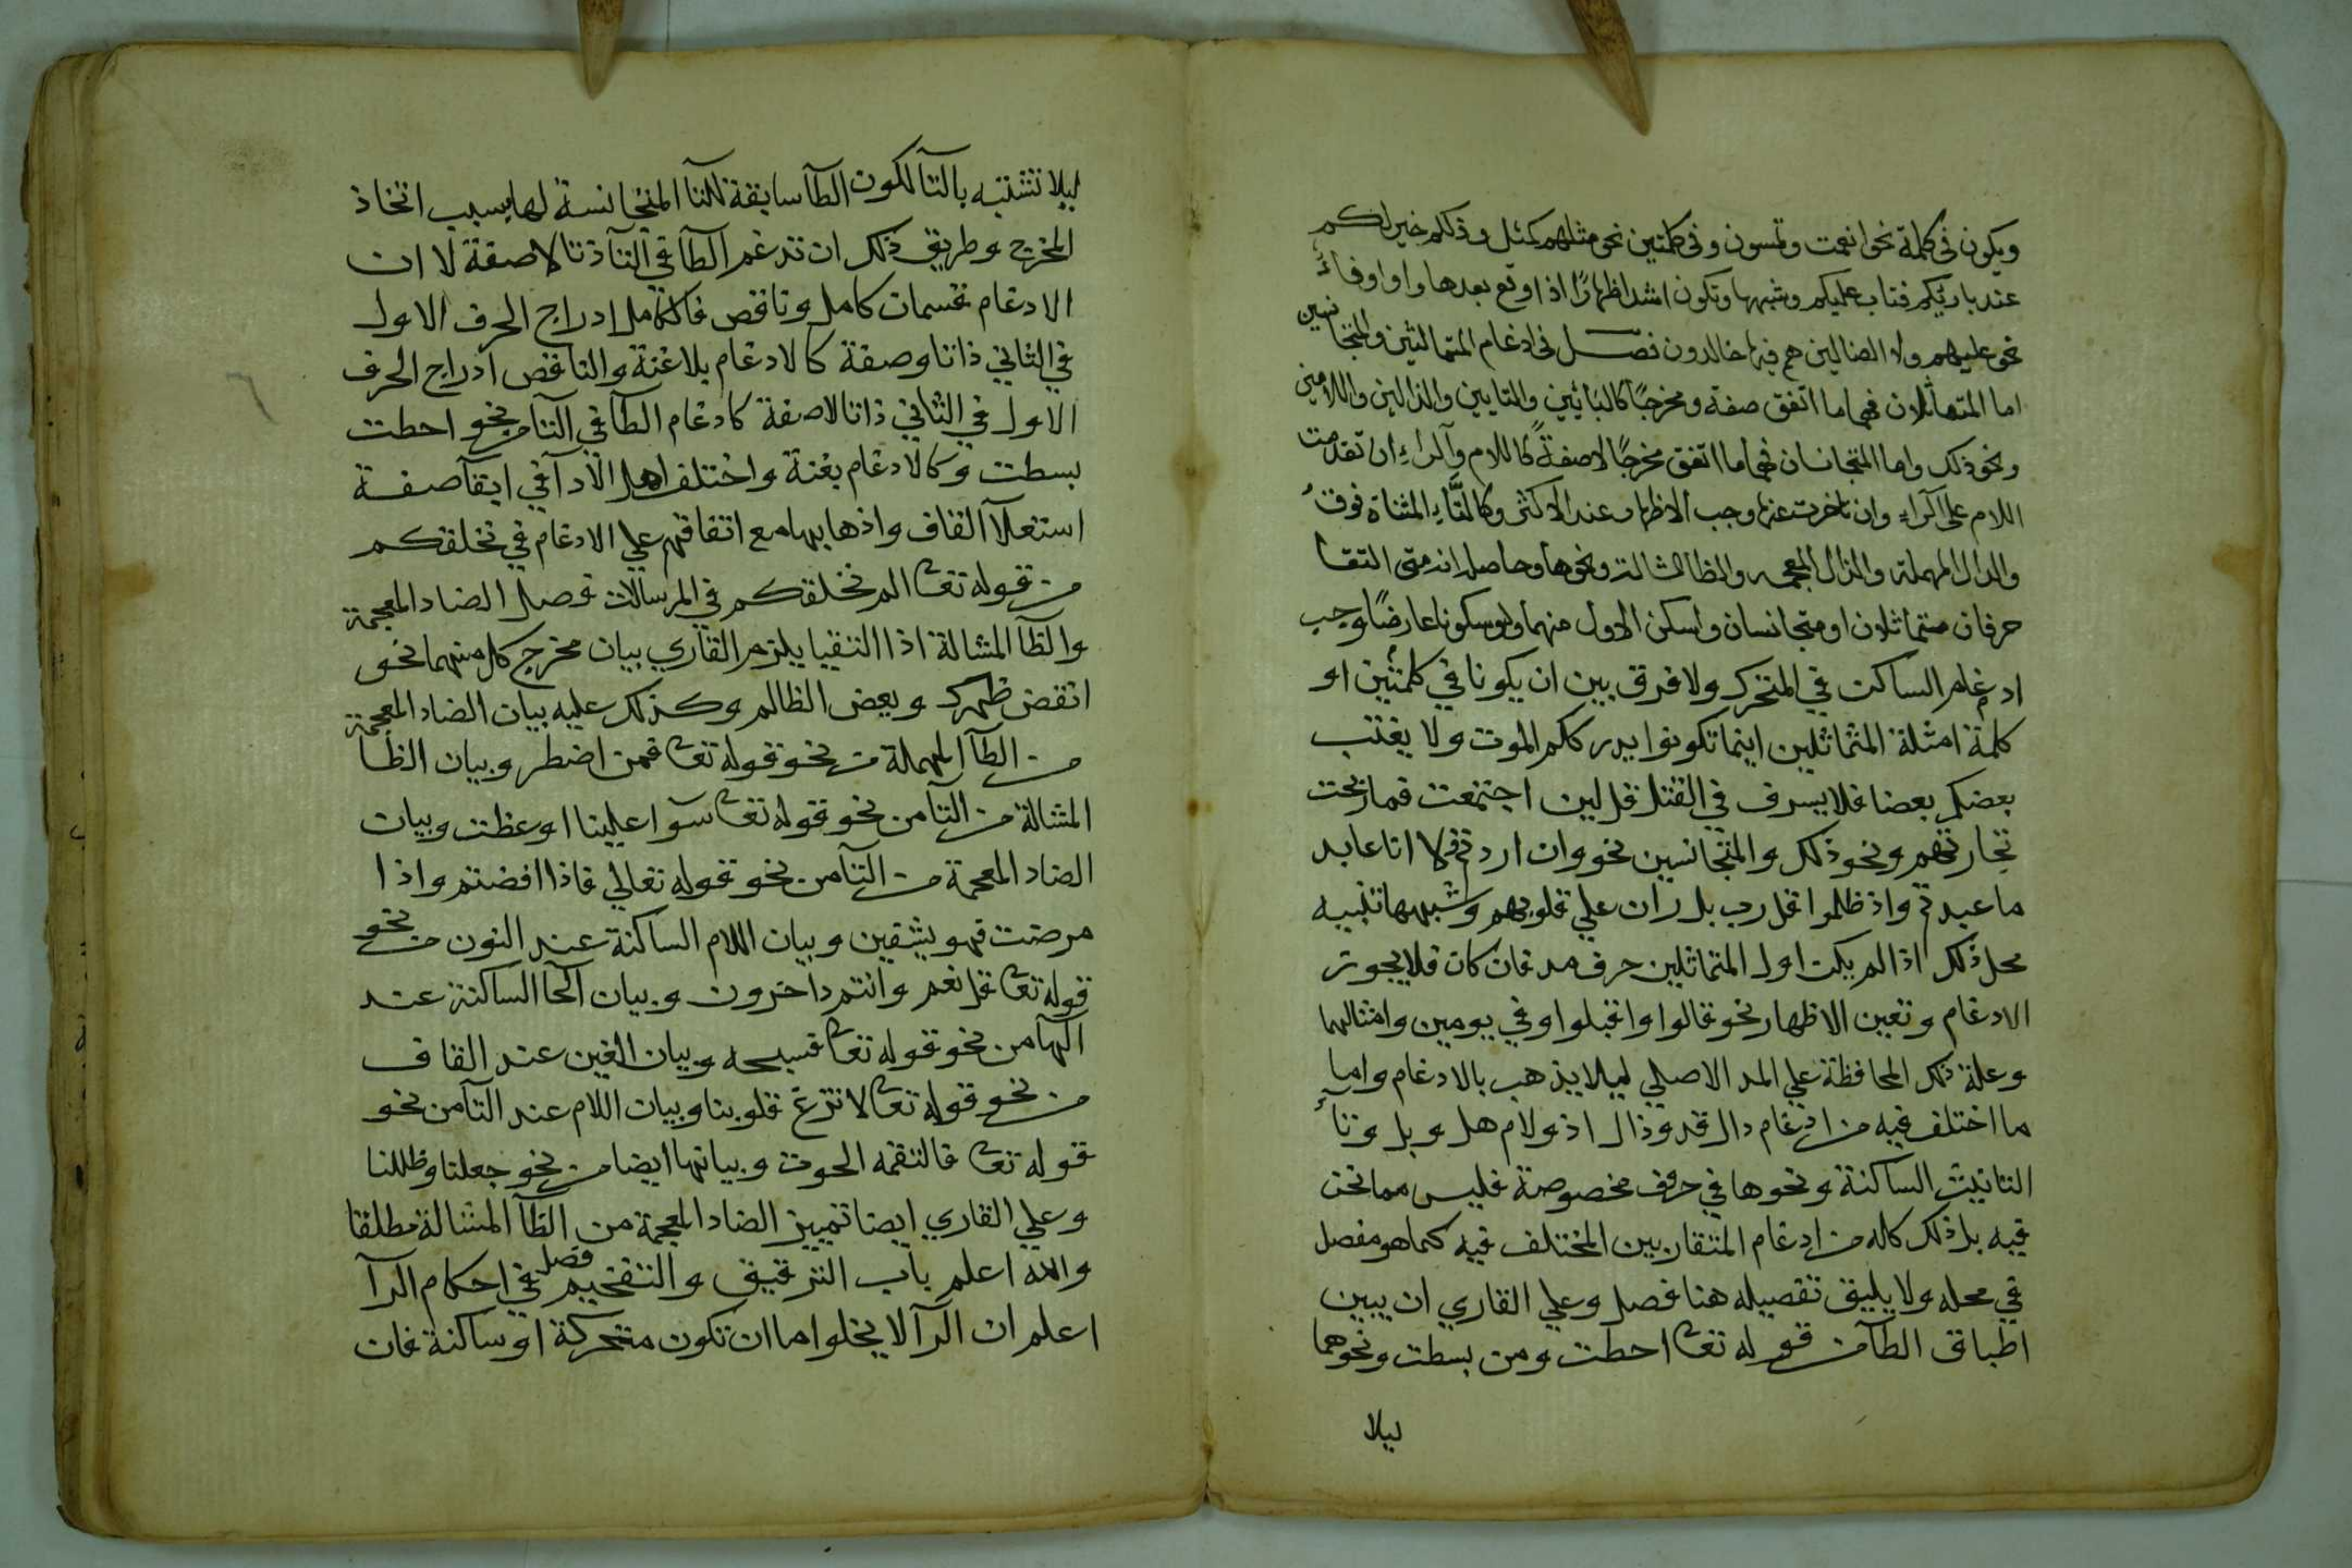 ويكون في كلمة نحو انعمت وتمسون وفي كلمتين نحو مثلهم كمثل وذلكم خير لكم
عند بارئكم فتاب عليكم وشبهها وتكون اشد اظهارًا اذا وقع بعدها واو او فاءٌ
نحو عليهم ولا الضالين هم فيها خالدون فصل في ادغام المتماثلين والمتجانسين
اما المتماثلان فهما ما اتفق صفة ومخرجًا كالبائين والتايين والذالين واللامين
ونحو ذلك واما المتجانسان فهما ما اتفق مخرجًا لا صفةً كاللام والراءِ ان تقدمت
اللام على الراء وان تاخرت عنها وجب الاظهار عند الاكثر وكالتَّاءِ المثناة فوقُ
والدال المهملة والذال المعجمه والظا المشالة ونحوها وحاصله انه متى التقا
حرفان متماثلان او متجانسان واسكن الاول منهما ولو سكونا عارضًا وجب
ادغام الساكن في المتحرك ولا فرق بين ان يكونا في كلمتين او
كلمة امثلة المثماثلين اينما تكونوا يدرككم الموت ولا يغتب
بعضكم بعضا فلا يسرف في القتل قل لين اجتمعت فما ربحت
تجارتهم ونحو ذلك والمتجانسين نحو وان اردتم ولا انا عابد
ما عبدتم واذ ظلموا قل رب بل ران علي قلوبهم وشبهها تنبيه
محل ذلك اذا لم يكن اول المتماثلين حرف مد فان كان فلا يجوز
الادغام وتعين الاظهار نحو قالوا واقبلوا وفي يومين وامثالهما
وعلة ذلك المحافظة علي المد الاصلي ليلا يذهب بالادغام واما
ما اختلف فيه من ادغام دال قد وذال اذ ولام هل وبل وتاء
التانيث الساكنة ونحوها في حروف مخصوصة فليس مما نحن
فيه بل ذلك كله من ادغام المتقاربين المختلف فيه كما هو مفصل
في محله ولا يليق تفصيله هنا فصل وعلي القاري ان يبين
اطباق الطآ من قوله تعا احطت ومن بسطت ونحوهما
ليلا
ليلا تشتبه بالتآ لكون الطآ سابقة للتا المتجانسة لها بسبب اتخاذ
المخرج وطريق ذلك ان تدغم الطآ في التآ ذتا لا صفة لا ان
الادغام قسمان كامل وناقص فالكامل ادراج الحرف الاول
في الثاني ذاتا وصفة كالادغام بلا غنة والناقص ادراج الحرف
الاول في الثاني ذاتا لا صفة كادغام الطآ في التآ من نحو احطت
بسطت وكالادغام بغنة واختلف اهل الادآ في ابقآ صفة
استعلآ القاف واذهابها مع اتفاقهم علي الادغام في نخلقكم
من قوله تعا الم نخلقكم في المرسالات فصل الضاد المعجمة
والظآ المشالة اذا التقيا يلزم القاري بيان مخرج كل منهما نحو
انقض ظهرك ويعض الظالم وكذلك عليه بيان الضاد المعجمة
من الطآ المهملة من نحو قوله تعا فمن اضطر وبيان الظآ
المشالة من التآ من نحو قوله تعا سوآ علينا اوعظت وبيان
الضاد المعجمة من التآ من نحو قوله تعالي فاذا افضتم واذا
مرضت فهو يشفين وبيان اللام الساكنة عند النون من نحو
قوله تعا قل نعم وانتم داخرون وبيان الحآ الساكنة عند
الهآ من نحو قوله تعا فسبحه وبيان الغين عند القاف
من نحو قوله تعا لا تزغ قلوبنا وبيان اللام عند التآ من نحو
قوله تعا فالتقمه الحوت وبيانها ايضا من نحو جعلنا وظللنا
وعلي القاري ايضا تمييز الضاد المعجمة من الظآ المشالة مطلقا
والله اعلم باب الترقيق والتفخيم فصل في احكام الرآ
اعلم ان الرآ لا يخلوا اما ان تكون متحركة او ساكنة فان